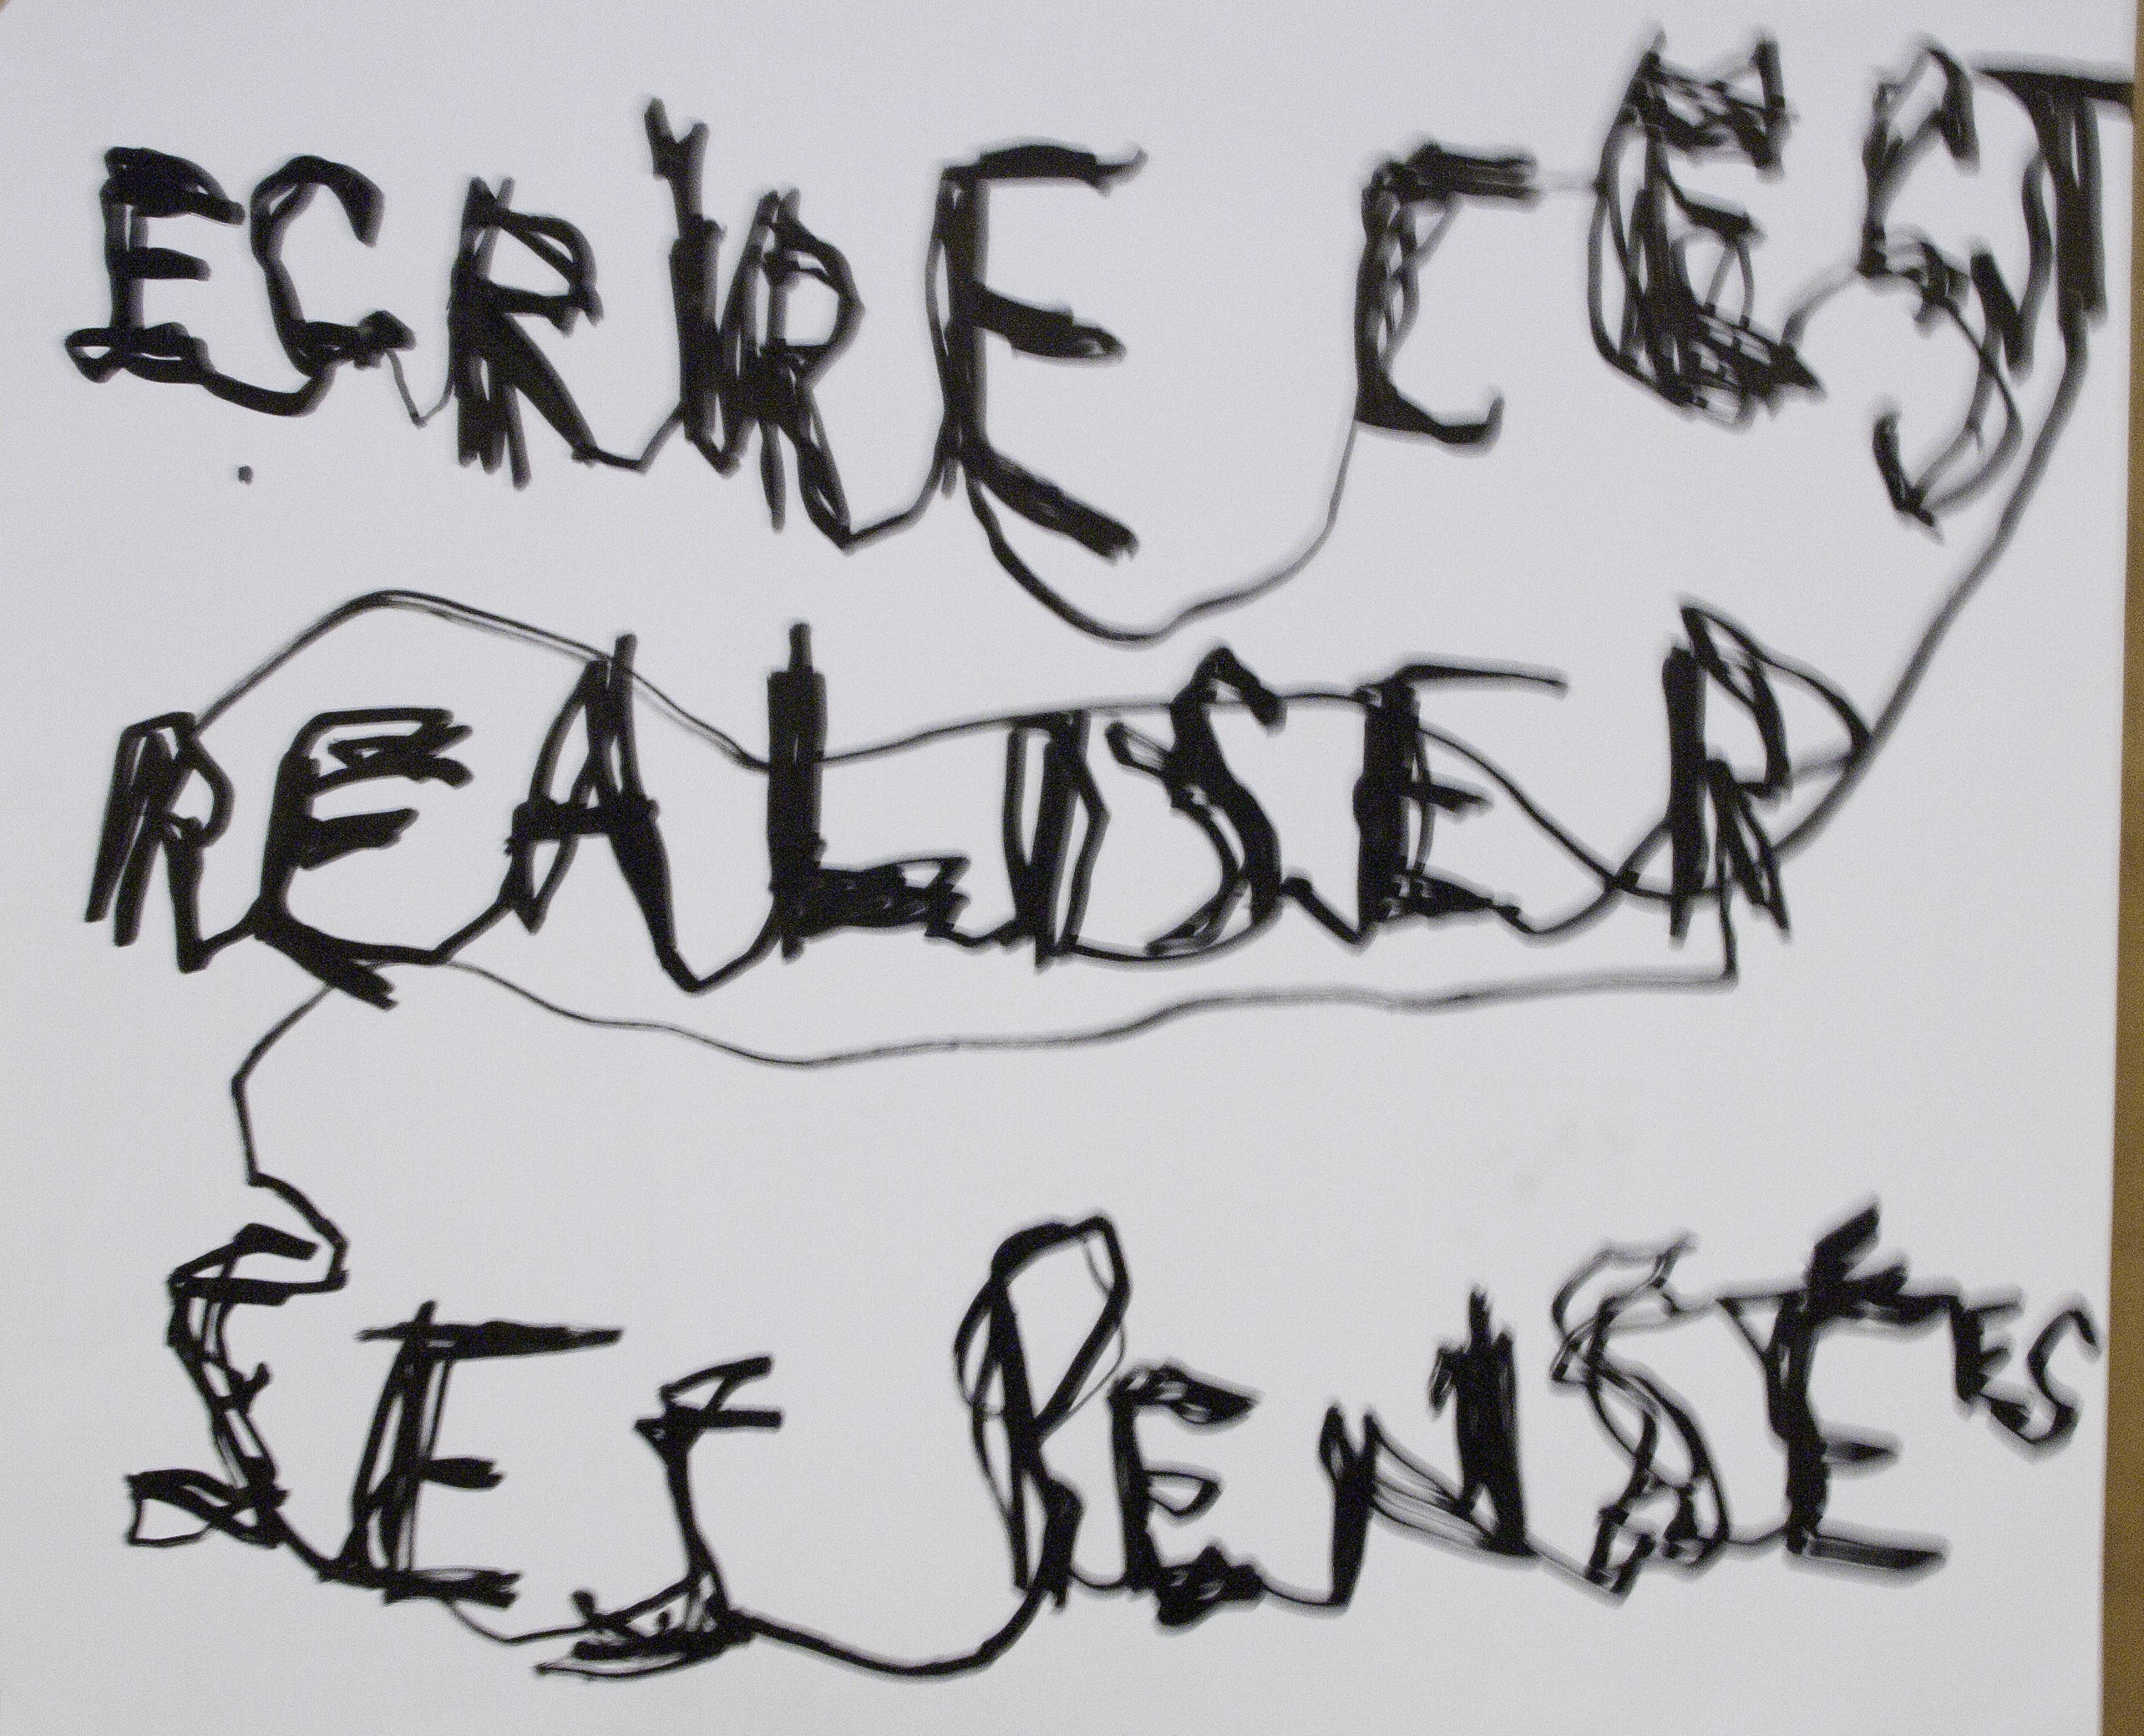 ECRIRE C EST
REALISER
SES PENSEES